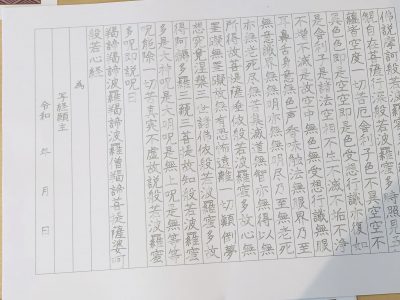 佛説摩訶般若波羅蜜多
觀自在菩薩行深般若波羅蜜多時照見五
蘊皆空度一切苦厄舍利子色不異空空不
異色色即是空空即是色受想行識亦復如
是舍利子是諸法空相不生不滅不垢不淨
不増不減是故空中無色無受想行識無眼
耳鼻舌身意無色声香味触法無眼界乃至
無意識界無無明亦無無明尽乃至無老死
亦無老死尽無苦集滅道無智亦無得以無
所得故菩提薩埵依般若波羅蜜多故心無
罣礙無罣礙故無有恐怖遠離一切顛倒夢
想究竟涅槃三世諸佛依般若波羅蜜多故
得阿耨多羅三藐三菩提故知般若波羅蜜
多是大神呪是大明呪是無上呪是無等等
呪能除一切苦真実不虚故説般若波羅蜜
多呪即説呪曰
羯諦羯諦波羅羯諦波羅僧羯諦菩提薩婆訶
般若心経
為
写経願主
令和 年 月 日